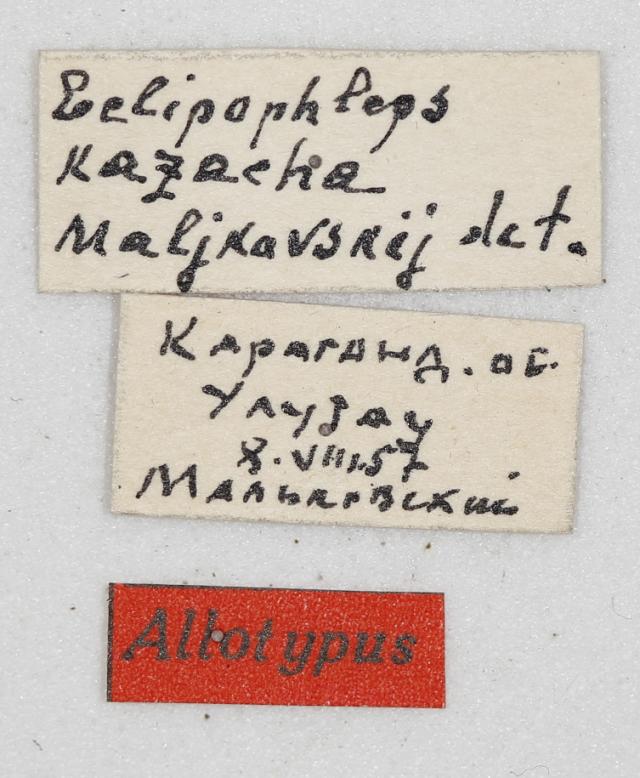 Eclipophleps
kazacha
Maljkovskij det.
Караганд. об.
Улутау
8.VIII.57
Мальковский
Allotypus